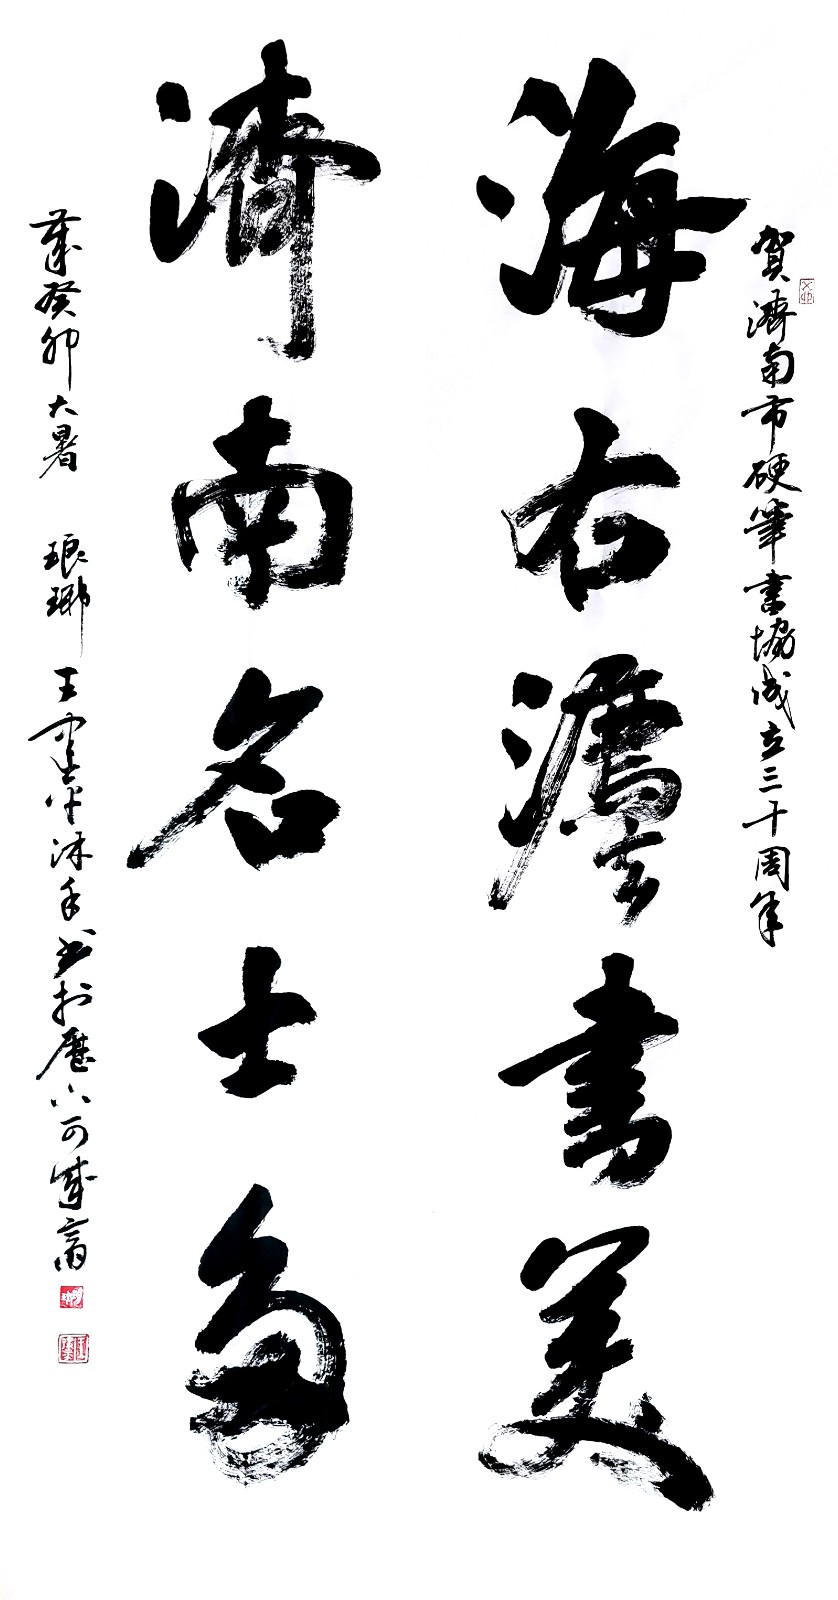 賀濟南市硬筆書協成立三十周年
海右灋書美
濟南名士多
歲癸卯大暑 琅琊王平沐手書於歷下可歲齋